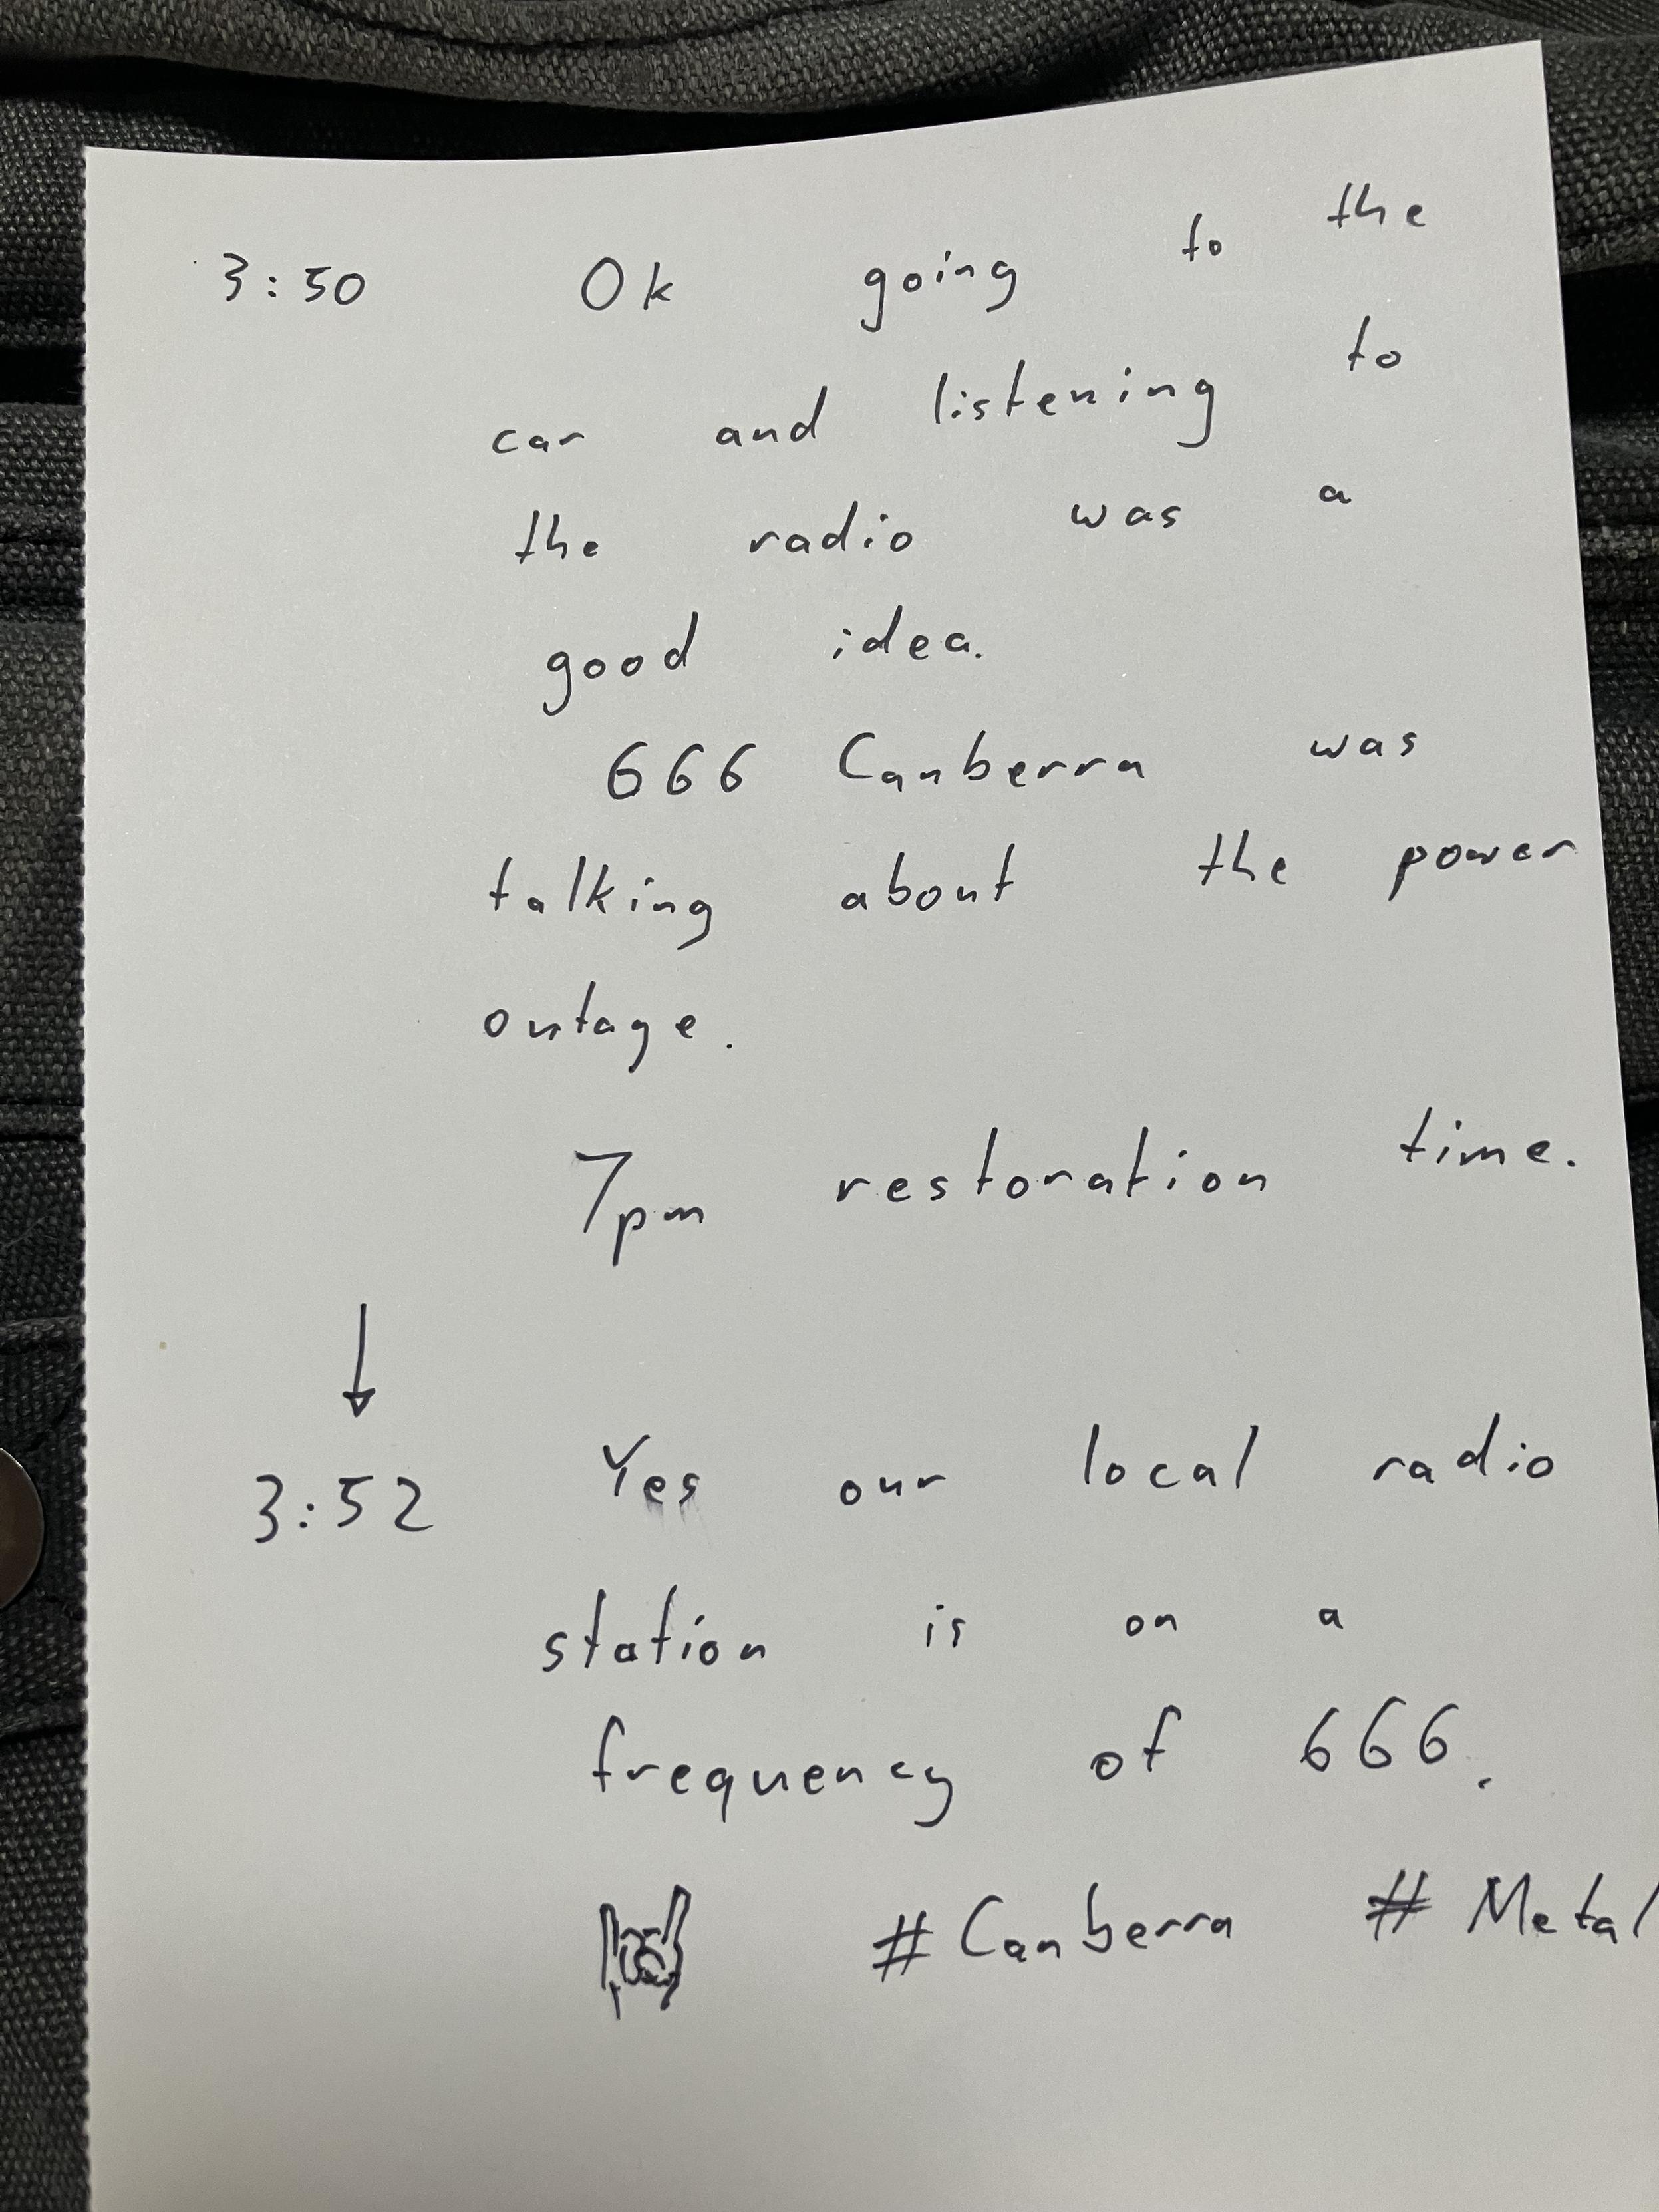 3:50 Ok going to the
car and listening to
the radio was a
good idea.
666 Canberra was
talking about the power
outage.
7pm restoration time.
3:52 Yes our local radio
station is on a
frequency of 666.
#Canberra #Metal